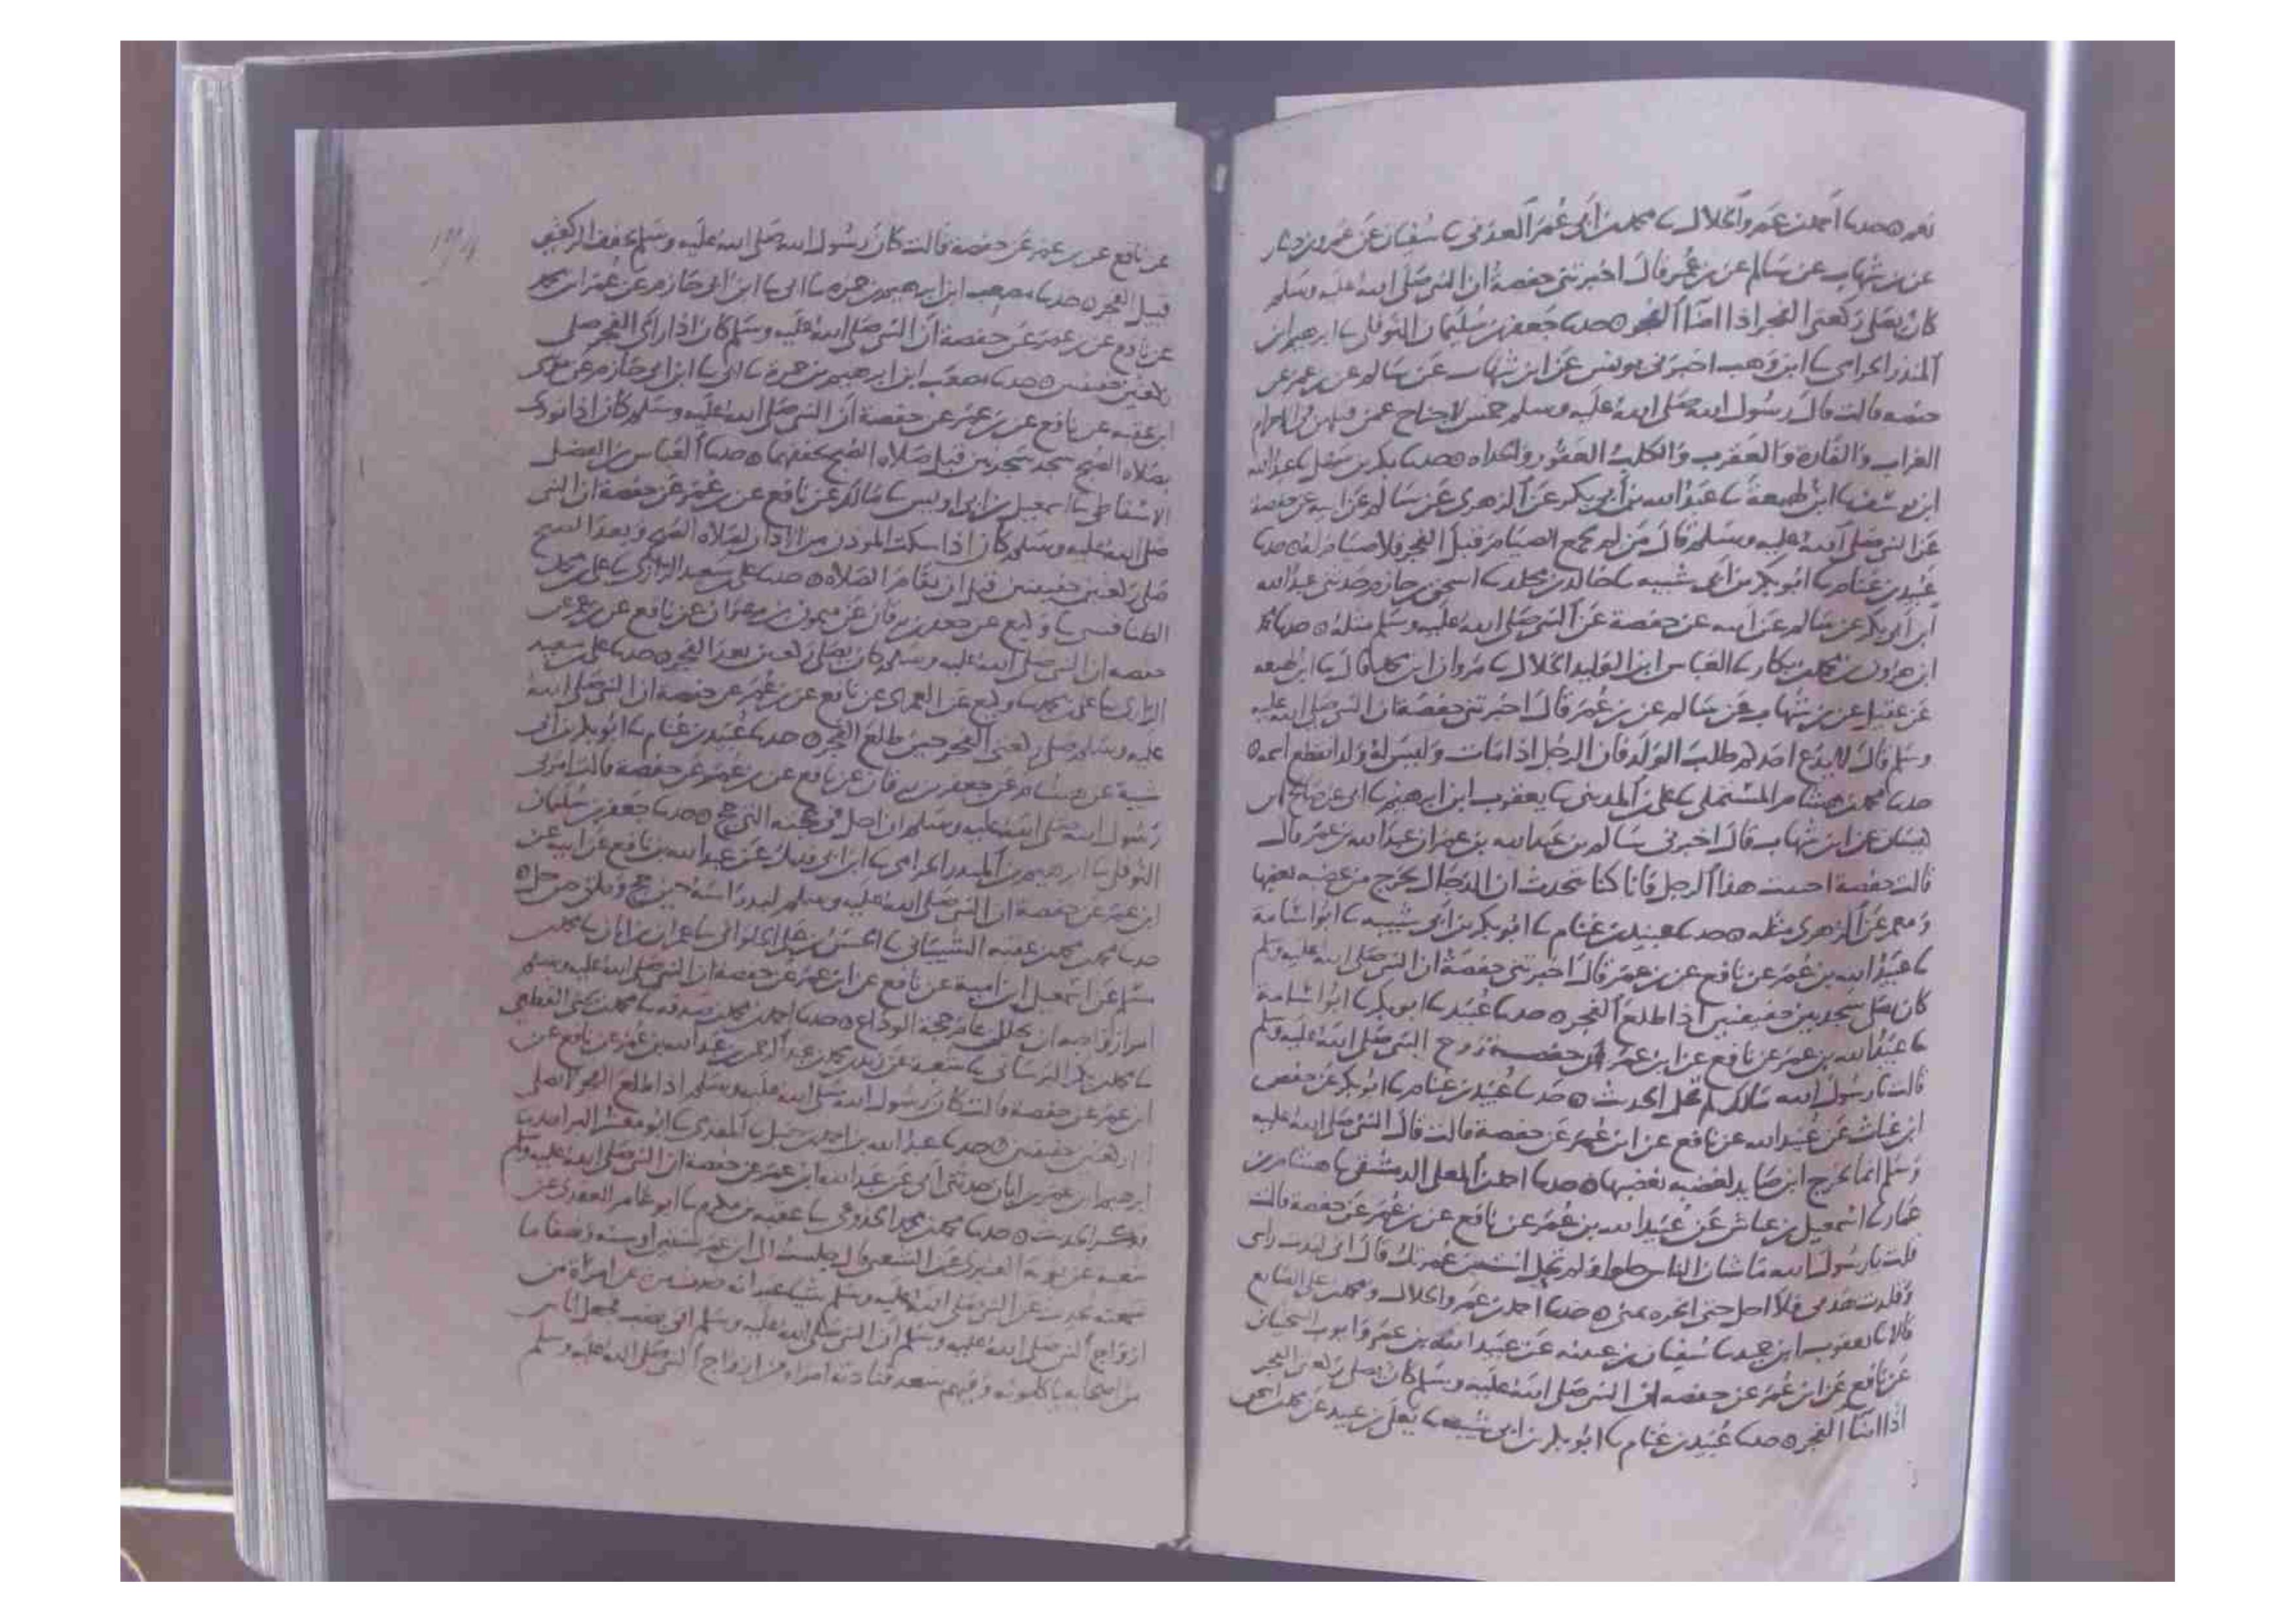 نعم ٥ حدثنا أحمد بن عمرو الخلال نا محمد بن أبي عمر العدني نا سفيان عن عمرو بن دينار
عن بن شهاب عن سالم عن بن عمر قال اخبرتني حفصة أن النبي صلى الله عليه وسلم
كان يصلي ركعتي الفجر اذا اضا الفجر ٥ حدثنا جعفر بن سليمان النوفلي نا ابرهيم ابن
المنذر الحزامي نا ابن وهب اخبرني يونس عن ابن شهاب عن سالم عن بن عمر عن
حفصه قالت قال رسول الله صلى الله عليه وسلم خمس لا جناح
الغراب والفارة والعقرب والكلب العقور والحداه ٥ حدثنا بكر بن سهل نا عبد الله
ابن يوسف نا ابن لهيعة نا عبد الله بن أبي بكر عن الزهري عن سالم عن ابيه عن حفصة
عن النبي صلى الله عليه وسلم قال من لم يجمع الصيام قبل الفجر فلا صيام له ٥ حدثنا
عبيد بن غنام نا ابو بكر بن أبي شيبه نا خالد بن مخلد نا اسحق بن حازم حدثني عبد الله
ابن أبي بكر عن سالم عن ابيه عن حفصة عن النبي صلى الله عليه وسلم مثله ٥ حدثنا محمد
ابن هرون بن محمد بن بكار نا العباس ابن الوليد الخلال نا مروان ابن محمد قال نا ابن لهيعه
عن عقيل عن بن شهاب عن سالم عن بن عمر قال اخبرتني حفصة ان النبي صلى الله عليه
وسلم قال لا يدع احدكم طلب الولد فان الرجل اذا مات وليس له ولد انقطع اسمه ٥
حدثنا محمد بن هشام المستملي نا علي بن المديني نا يعقوب ابن ابرهيم نا ابي عن صالح ابن
كيسان عن ابن شهاب قال اخبرني سالم بن عبد الله بن عمر ان عبد الله بن عمر قال
قالت حفصة اجتنب هذا الرجل فانا كنا نتحدث ان الدجال يخرج من غضبه يغضبها
ومعمر عن الزهري مثله ٥ حدثنا عبيد بن غنام نا ابو بكر بن ابي شيبه نا ابو اسامة
نا عبيد الله بن عمر عن نافع عن بن عمر قال اخبرتني حفصة ان النبي صلى الله عليه وسلم
كان يصلي سجدتين خفيفتين اذا طلع الفجر ٥ حدثنا عبيد نا ابو بكر نا ابو اسامة
نا عبيد الله بن عمر عن نافع عن ابن عمر ان حفصة زوج النبي صلى الله عليه وسلم
قالت يا رسول الله مالك لم تحل الحديث ٥ حدثنا عبيد بن غنام نا ابو بكر عن حفص
ابن غياث عن عبيد الله عن نافع عن ابن عمر عن حفصة قالت قال النبي صلى الله عليه
وسلم انما يخرج ابن صايد لغضبه يغضبها ٥ حدثنا احمد بن المعلى الدمشقي نا هشام بن
عمار نا اسمعيل بن عياش عن عبيد الله بن عمر عن نافع عن بن عمر عن حفصة قالت
قلت يا رسول الله ما شان الناس حلوا ولم تحل انت من عمرتك قال اني لبدت راسي
وقلدت هديي فلا احل حتى انحره بمنى ٥ حدثنا احمد بن عمرو الخلال ومحمد بن علي الصايغ
قالا نا يعقوب ابن حميد نا سفيان بن عيينه عن عبيد الله بن عمر وايوب السختياني
عن نافع عن ابن عمر عن حفصه ان النبي صلى الله عليه وسلم كان يصلي ركعتي الفجر
اذا اضا الفجر ٥ حدثنا عبيد بن غنام نا ابو بكر بن ابي شيبه نا يعلى بن عبيد عن محمد بن اسحق
عن نافع عن بن عمر عن حفصة قالت كان رسول الله صلى الله عليه وسلم يخفف الركعتين
قبل الفجر ٥ حدثنا مصعب ابن ابرهيم بن حمزه نا ابي نا ابن ابي حازم عن عمر ابن محمد
عن نافع عن بن عمر عن حفصة أن النبي صلى الله عليه وسلم كان اذا رأى الفجر صلى
ركعتين خفيفتين ٥ حدثنا مصعب ابن ابرهيم بن حمزة نا ابي نا ابن ابي حازم عن موسى
ابن عقبه عن نافع عن بن عمر عن حفصة أن النبي صلى الله عليه وسلم كان اذا نودي
بصلاه الصبح سجد سجدتين قبل صلاه الصبح يخففهما ٥ حدثنا العباس بن الفضل
الاسفاطي نا اسمعيل بن ابي اويس نا مالك عن نافع عن بن عمر عن حفصة ان النبي
صلى الله عليه وسلم كان اذا سكت الموذن من الاذان لصلاه الصبح وبدا الصبح
صلى ركعتين خفيفتين قبل ان يقام الصلاه ٥ حدثنا علي بن سعيد الرازي نا علي بن محمد
الطنافسي نا وكيع عن جعفر بن برقان عن ميمون بن مهران عن نافع عن بن عمر عن
حفصه ان النبي صلى الله عليه وسلم كان يصلي ركعتين بعد الفجر ٥ حدثنا علي بن سعيد
الرازي نا علي بن محمد نا وكيع عن العمري عن نافع عن بن عمر عن حفصة ان النبي صلى الله
عليه وسلم صلى ركعتي الفجر حين طلع الفجر ٥ حدثنا عبيد بن غنام نا ابو بكر بن أبي
شيبة عن هشام عن جعفر بن برقان عن نافع عن بن عمر عن حفصة قالت امرني
رسول الله صلى الله عليه وسلم ان احل في حجته التي حج ٥ حدثنا جعفر بن سليمان
النوفلي نا ابرهيم بن المنذر الحزامي نا ابن ابي فديك عن عبد الله بن نافع عن ابيه عن
ابن عمر عن حفصة ان النبي صلى الله عليه وسلم لبد راسه حين حج
حدثنا محمد بن محمد بن عقبه الشيباني نا الحسن بن علي الحلواني نا عمران بن ابان نا محمد بن
مسلم عن اسمعيل ابن امية عن نافع عن ابن عمر عن حفصة ان النبي صلى الله عليه وسلم
امر ازواجه ان يحللن عام حجة الوداع ٥ حدثنا احمد بن محمد بن صدقه نا محمد بن يحيى القطعي
نا محمد بن بكر البرساني نا شعبة عن زيد بن محمد بن عبد الله بن عمر عن نافع عن
ابن عمر عن حفصة قالت كان رسول الله صلى الله عليه وسلم اذا طلع الفجر لا يصلي
الا ركعتين خفيفتين ٥ حدثنا عبد الله بن احمد بن حنبل نا المقدمي نا ابو معشر البرا حدثنا
ابرهيم ابن عمر بن ابان حدثني أبي عن عبد الله ابن عمر عن حفصة ان النبي صلى الله عليه وسلم
فذكر الحديث ٥ حدثنا محمد بن محمد الجذوعي نا عقبه بن مكرم نا ابو عامر العقدي عن
شعبه عن توبة العنبري عن الشعبي قال جلست الى ابن عمر سنتين او سنه ونصفا ما
سمعته يحدث عن النبي صلى الله عليه وسلم شيا غير انه حدث عن امرأة من
ازواج النبي صلى الله عليه وسلم أن النبي صلى الله عليه وسلم اتى بضب فجعل ناس
من اصحابه ياكلونه وفيهم سعد فنادته امراه من ازواج النبي صلى الله عليه وسلم